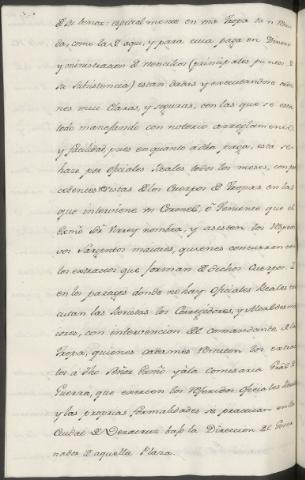 de temor: especialmente en una Tropa tan
das, como la de aqui, y para cuia paga en Dinero
y ministracion de utencilios (principales puntos de
su subsistencia) estan dadas y executandose
nes mui claras, y seguras, con las que se está
todo manejando con notorio arreglamiento
y facilidad, pues en quanto á dha. paga, esta se
hace por oficiales Reales todos los meses, con
cedentes revistas de los Cuerpos de Tropas en las
que interviene un Coronel, ó Theniente que el
Exmô. Sôr. Virrey nombra, y asisten los
vos Sargentos maiores, quienes concurren con
los extractos que forman de dichos Cuerpos, y
en los parages donde no hay Oficiales Reales
cutan las Revistas los Corregidores, y Alcaldes ma
iores, con intervencion del Comandante de la
Tropa, quienes ademas remiten los extrac
tos á dho. Señor Exmô. y á la Comisaria Gral. de
Guerra, que exercen los referidos oficiales Reales
y las proprias formalidades se practican en la
Ciudad de Veracruz bajo la Direccion del Gover
nador de aquella Plaza.